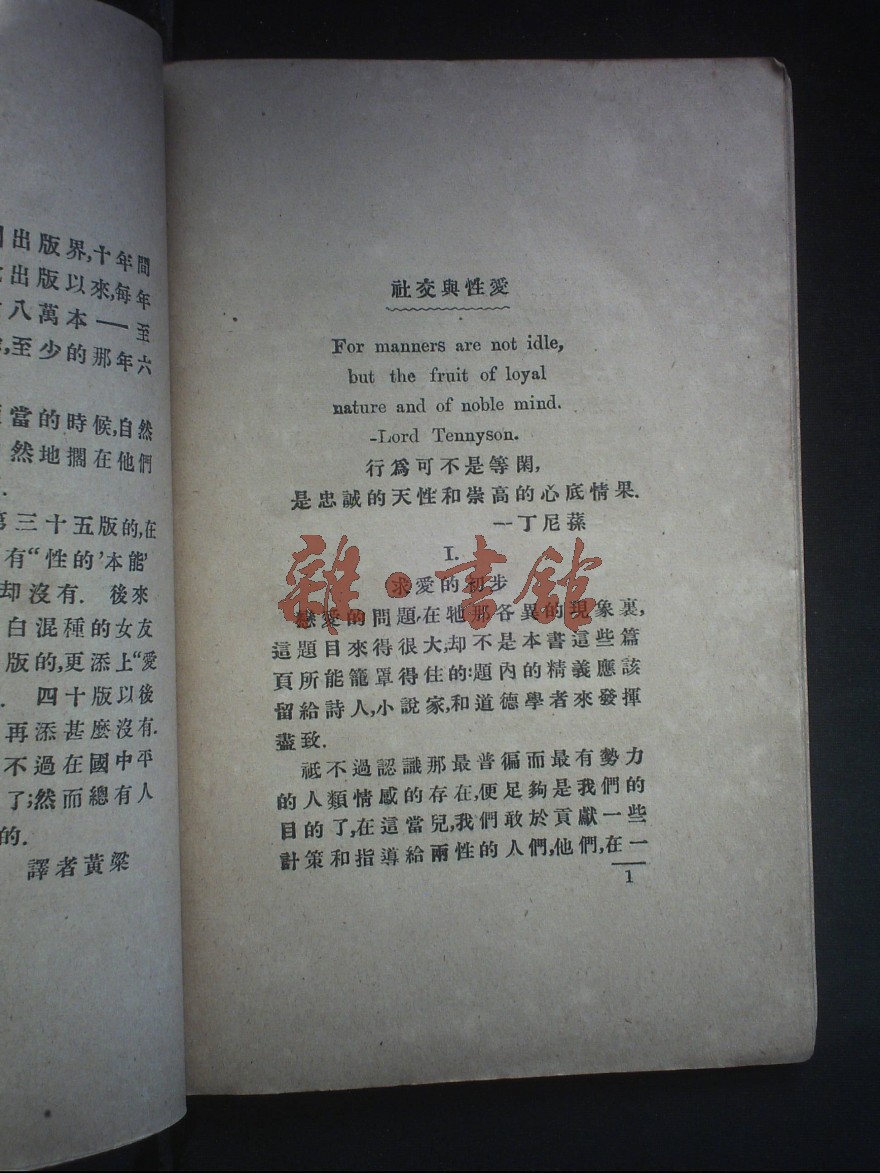 出版界,十年間
出版以來,每年
八萬本——至
至少的那年六
當的時候,自然
然地擱在他們
三十五版的,在
有“性的’本能’
却沒有. 後來
白混種的女友
版的,更添上“愛
. 四十版以後
再添甚麼沒有.
不過在國中平
了;然而總有人
的.
譯者黃梁
社交與性愛
For manners are not idle,
but the fruit of loyal
nature and of noble mind.
-Lord Tennyson.
行爲可不是等閑,
是忠誠的天性和崇高的心底情果.
—丁尼蓀
I.
求愛的初步
戀愛的問題,在牠那各異的現象裏,
這題目來得很大,却不是本書這些篇
頁所能籠罩得住的:題內的精義應該
留給詩人,小說家,和道德學者來發揮
盡致.
祇不過認識那最普徧而最有勢力
的人類情感的存在,便足夠是我們的
目的了,在這當兒,我們敢於貢獻一些
計策和指導給兩性的人們,他們,在一
1
雜·書館